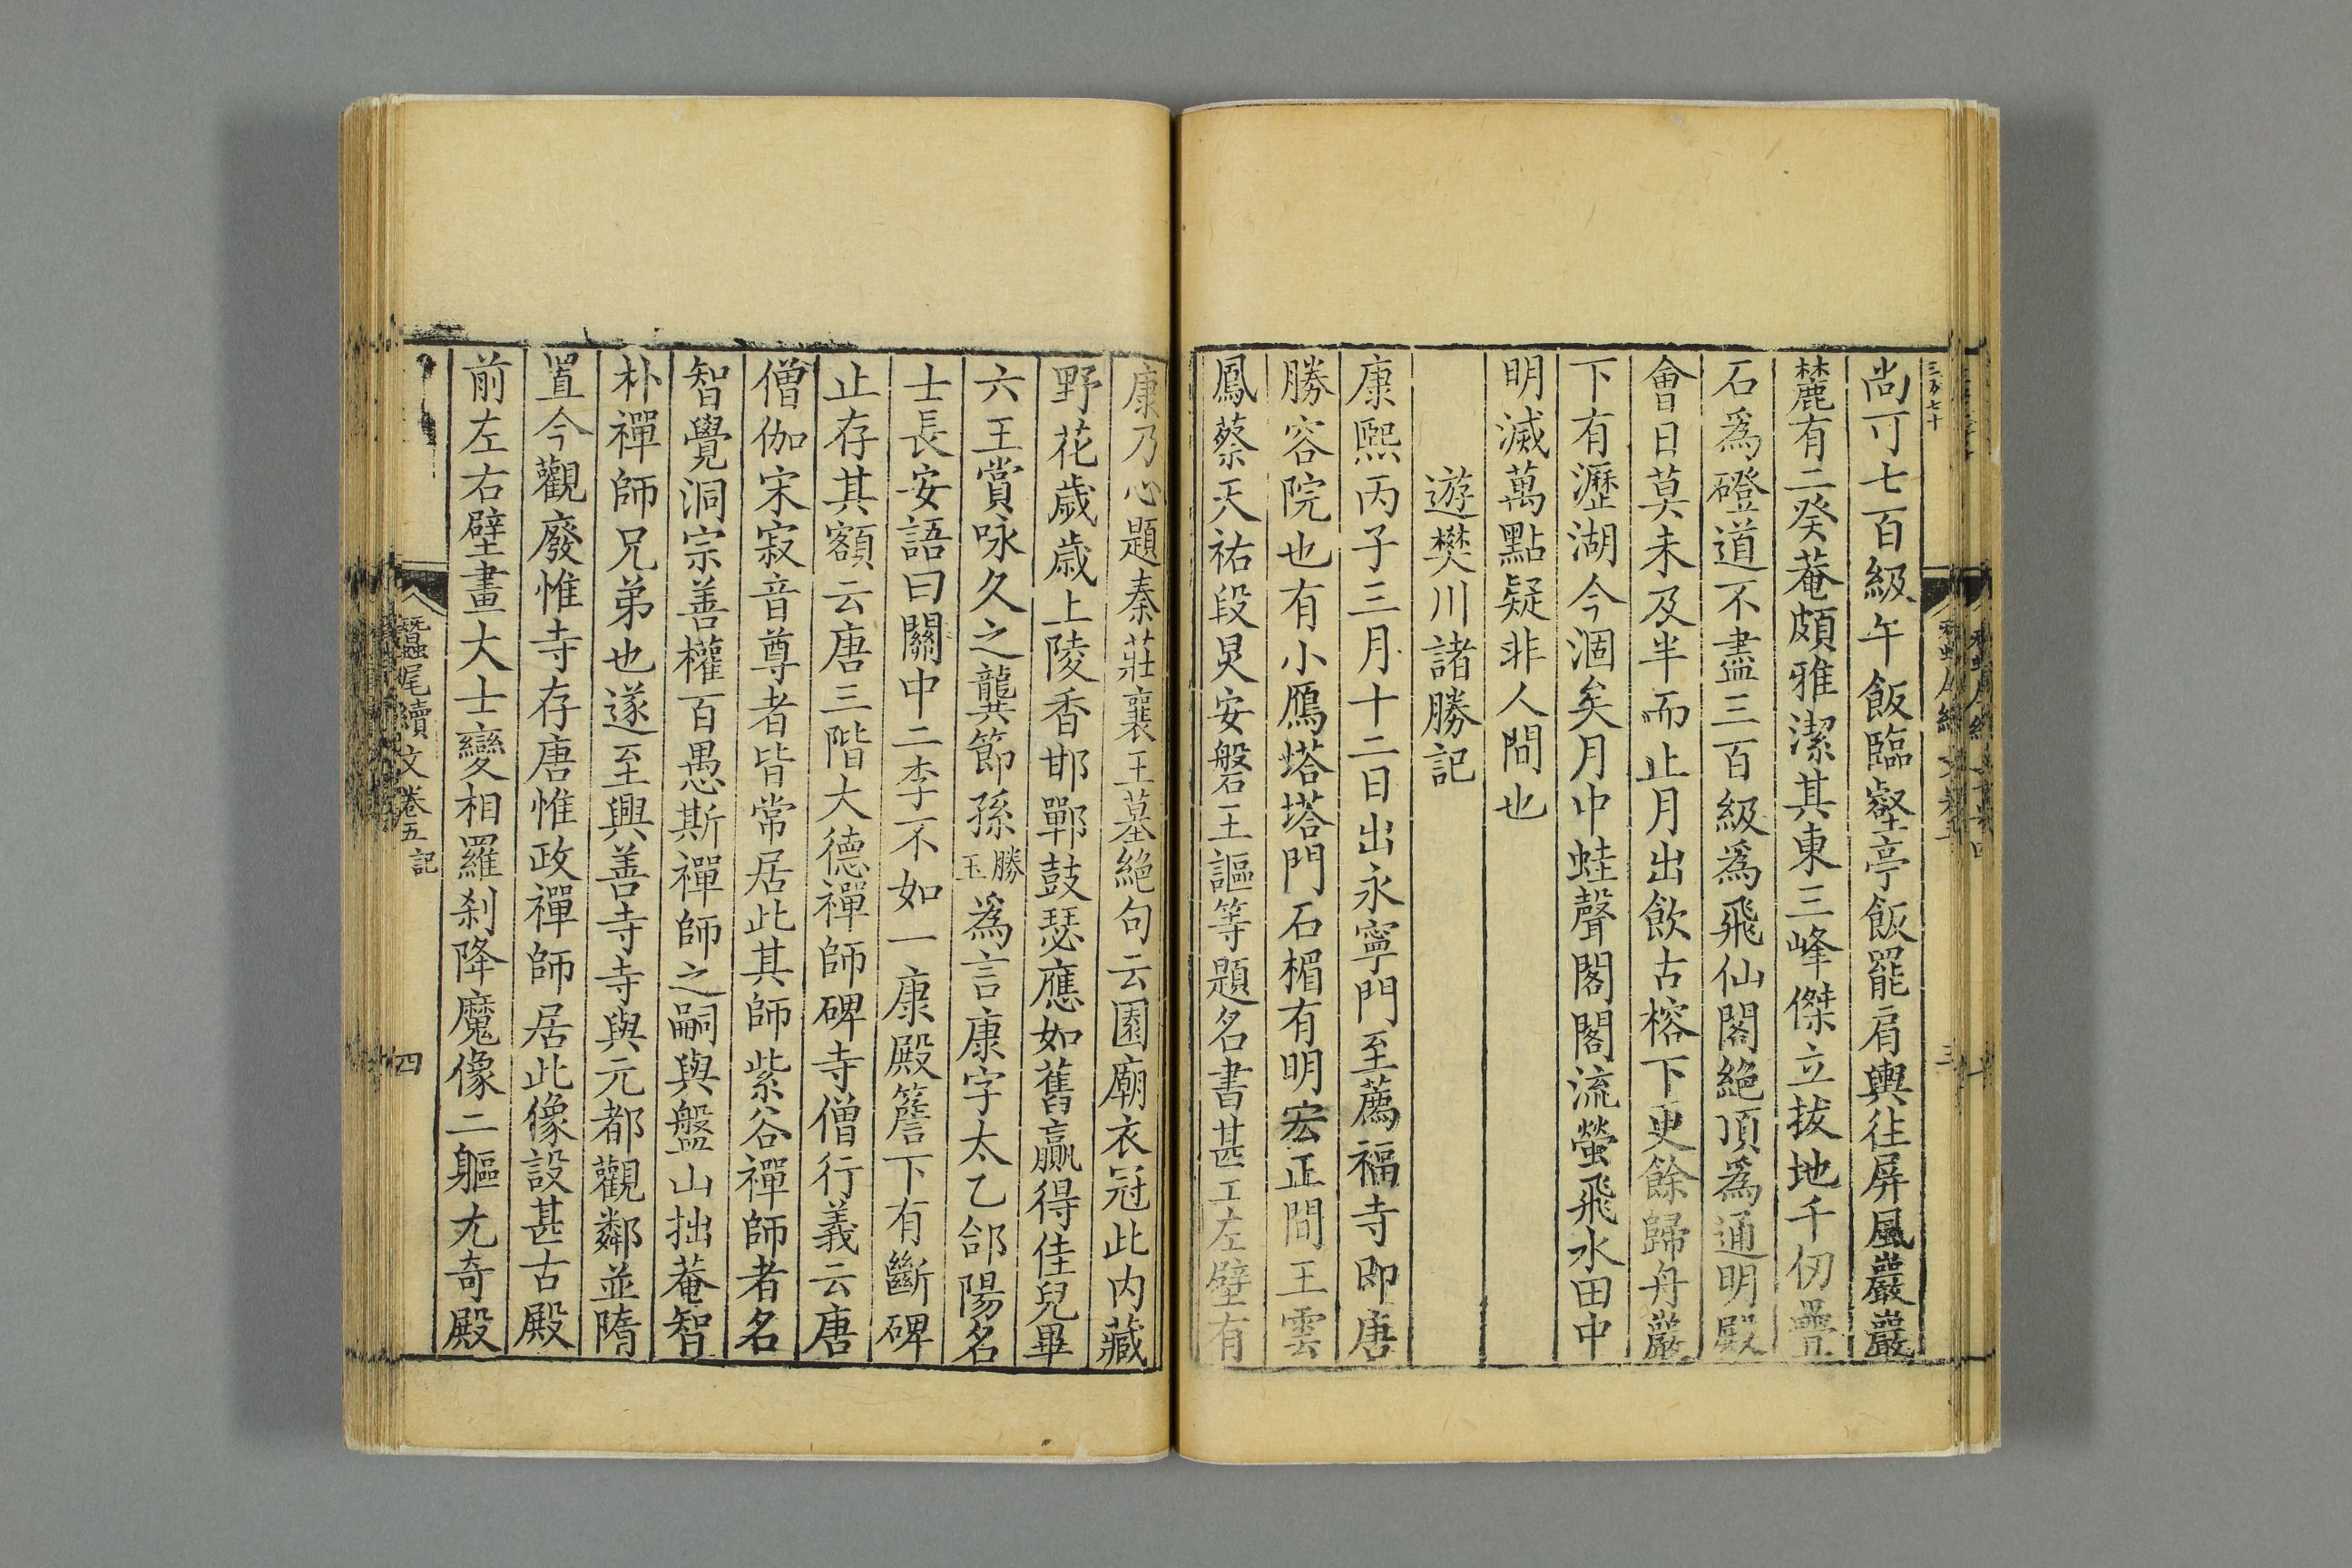 三百七十
尚可七百級午飯臨壑亭飯罷肩輿往屏風巖巖
麓有二癸菴頗雅潔其東三峰傑立拔地千仞疊
石爲磴道不盡三百級爲飛仙閣絶頂爲通明殿
會日莫未及半而止月出飲古榕下更餘歸舟巖
下有瀝湖今涸矣月中蛙聲閣閣流螢飛水田中
明滅萬點疑非人間也
遊樊川諸勝記
康熙丙子三月十二日出永寧門至薦福寺即唐
勝容院也有小鴈塔塔門石楣有明宏正間王雲
鳳蔡天祐段炅安磐王謳等題名書甚工左壁有
康乃心題秦莊襄王墓絶句云園廟衣冠此内藏
野花歲歲上陵香邯鄲鼓瑟應如舊贏得佳兒畢
六王賞咏久之龔節孫勝玉爲言康字太乙郃陽名
士長安語曰關中二李不如一康殿簷下有斷碑
止存其額云唐三階大德禪師碑寺僧行義云唐
僧伽宋寂音尊者皆常居此其師紫谷禪師者名
智覺洞宗善權百愚斯禪師之嗣與盤山拙菴智
朴禪師兄弟也遂至興善寺寺與元都觀鄰並隋
置今觀廢惟寺存唐惟政禪師居此像設甚古殿
前左右壁畫大士變相羅刹降魔像二軀尤奇殿
蠶尾續文卷五 記
四